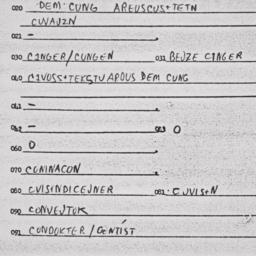 020 DEM. CUNG AREUSCUS+TETN
CUVAJZN
021 -
030 CINGER/CUNGEN 031 BEJZE CINGER
040 CIVOSS+TEKSTUAPOUS DEM CUNG
041 -
042 - 043 0
060 0
070 CUNINACON
080 CVISINDICEJNER 081 · CJVISEN
090 CONVEJTOK
091 CONDOKTER / DENTIST